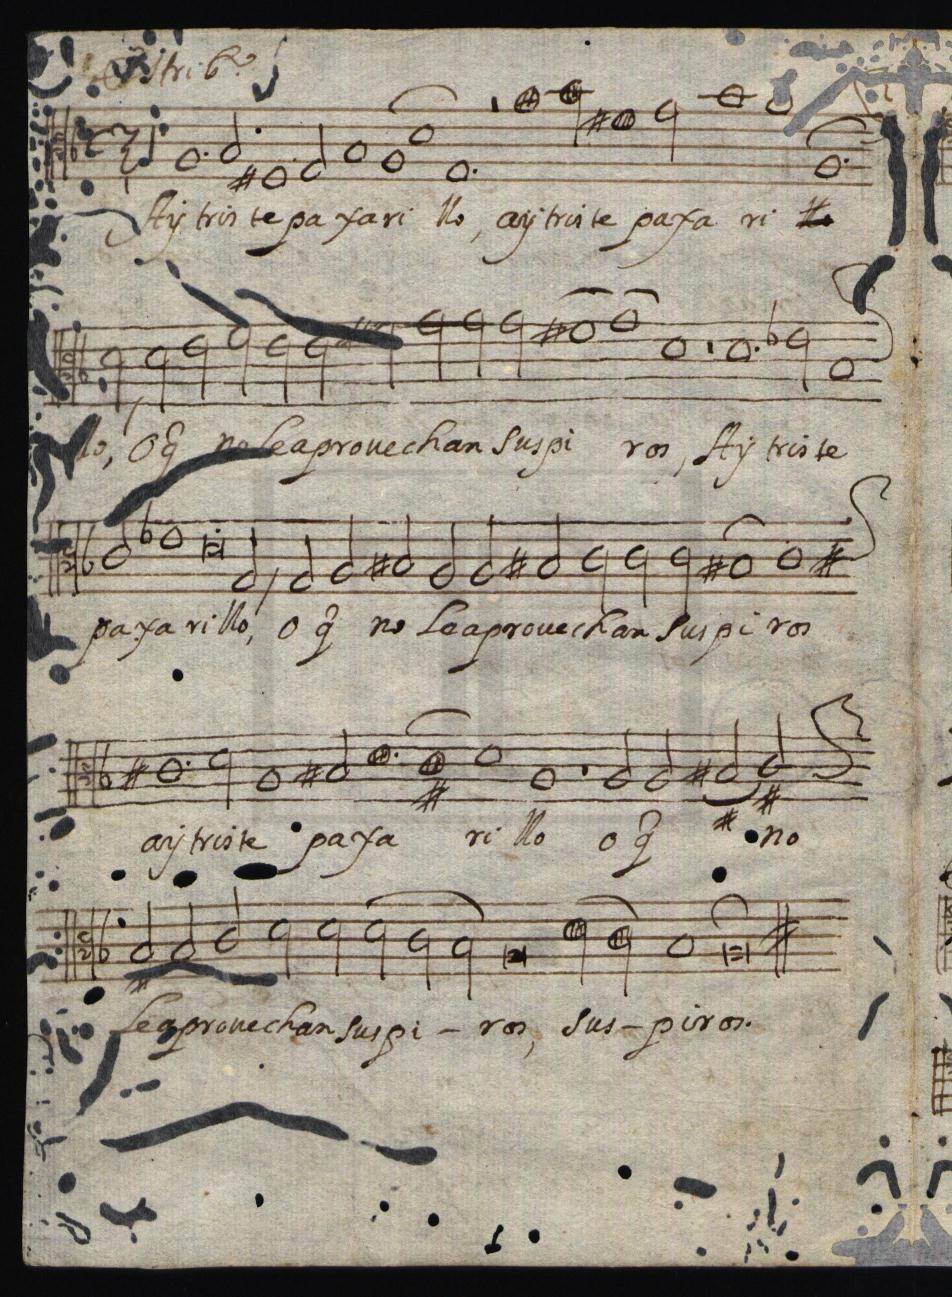 Estribo
Ay triste paxari llo, ay triste paxa ri llo
llo, o q̃ no le aprouechan suspi ros, Ay triste
paxarillo, o q̃ no le aprouechan suspi ros
ay triste paxa ri llo o q̃ no
le aprouechan suspi - ros, sus - piros.